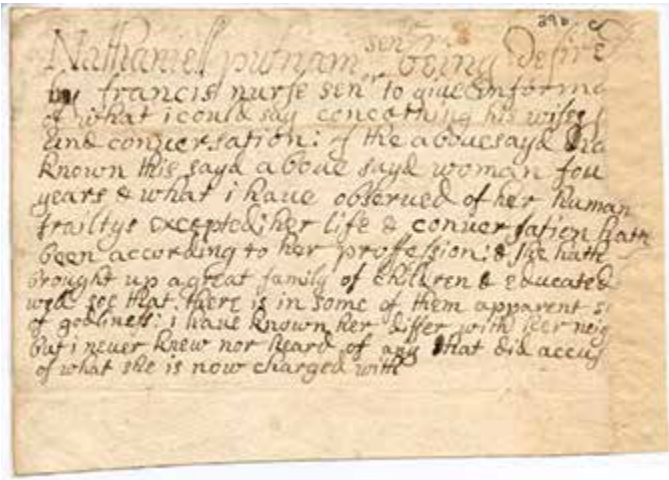 390
Nathaniel putnam sen^r being desire
francis nurse sen^r to give informa
of what i could say concerning his wifes
and conversation: i the abovesayd ha
known this sayd above sayd woman fou
years & what i have observed of her human
frailtys excepted: her life & conversation hath
been according to her profession: & she hath
brought up a great family of children & educated
well soe that there is in some of them apparent s
of godliness: i have known her differ with her neig
but i never knew nor heard of any that did accus
of what she is now charged with